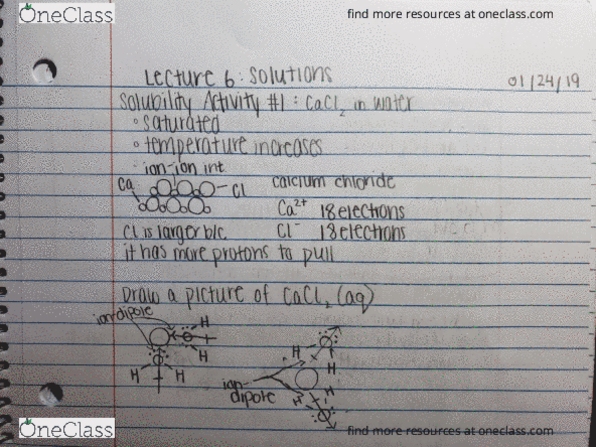 OneClass
find more resources at oneclass.com
Lecture 6: Solutions
01/24/19
Solubility Activity #1: CaCl₂ in water
◦ saturated
◦ temperature increases
◦ ion-ion int
Ca
Cl
calcium chloride
Ca²⁺ 18 electrons
Cl⁻ 18 electrons
Cl is larger b/c
it has more protons to pull
Draw a picture of CaCl₂ (aq)
ion-dipole
H
H
H
H
H
H
H
H
ion-
dipole
OneClass
find more resources at oneclass.com